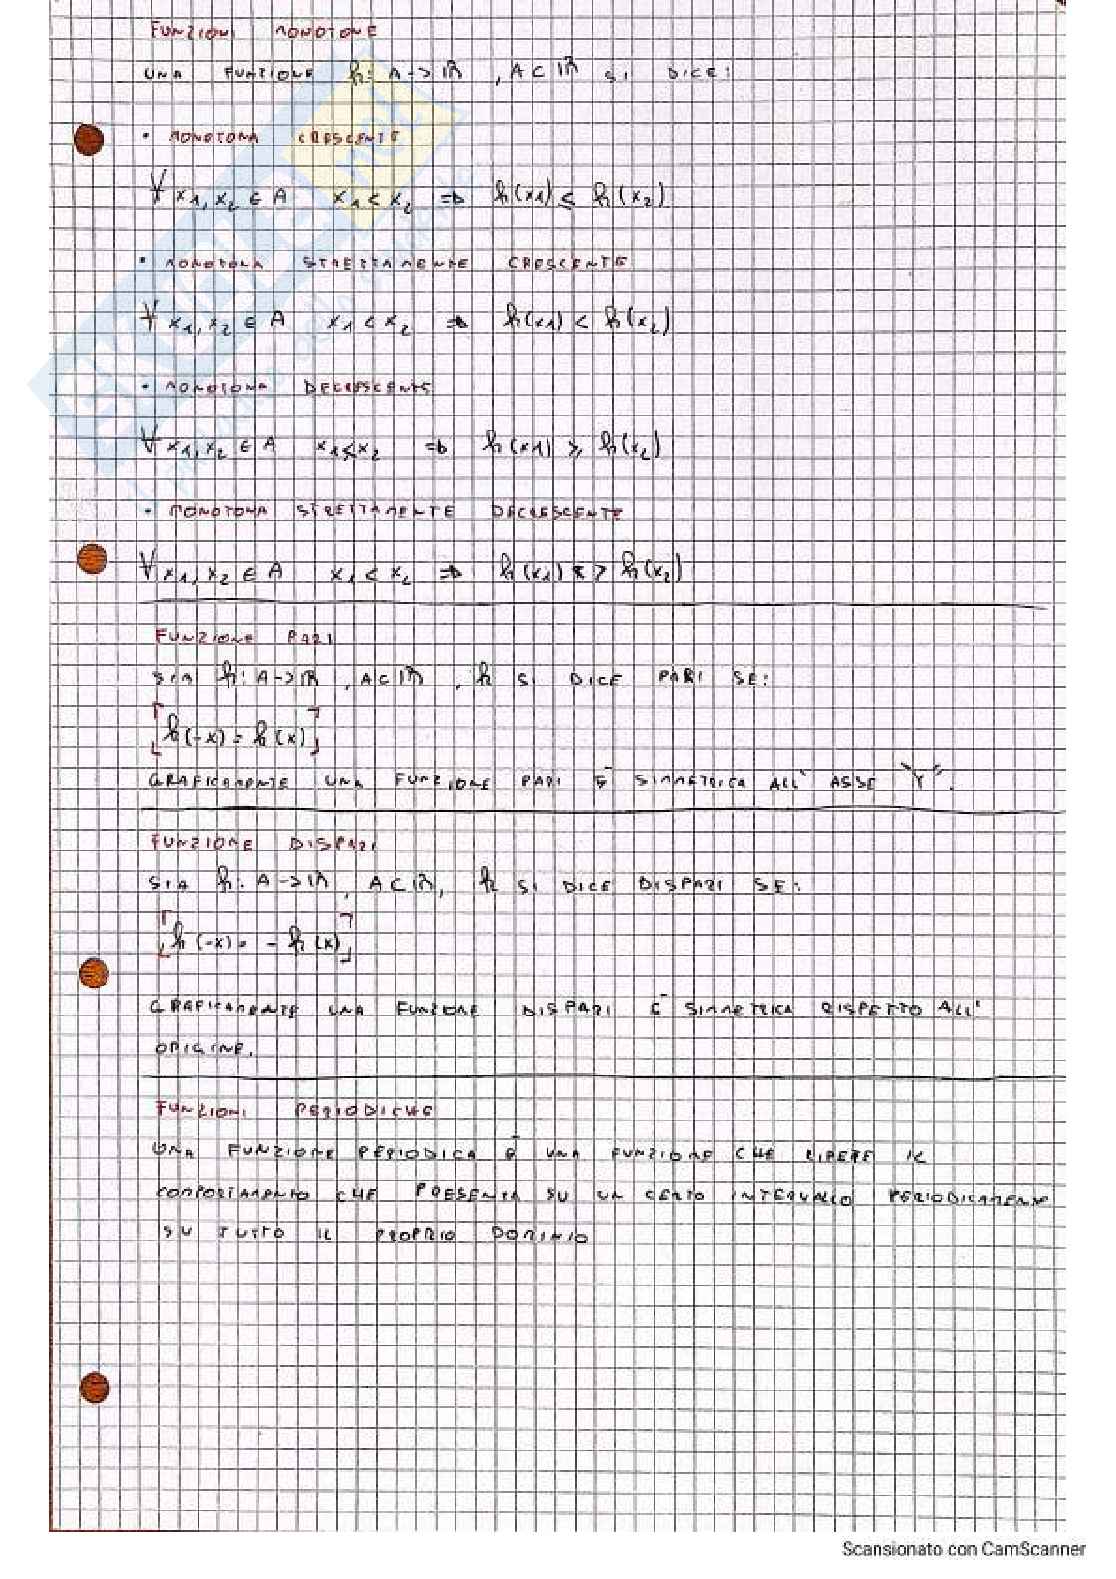 FUNZIONI MONOTONE
UNA FUNZIONE h: A->ℝ , A⊂ℝ SI DICE:
• MONOTONA CRESCENTE
∀ x1, x2 ∈ A x1 < x2 => h(x1) ≤ h(x2)
• MONOTONA STRETTAMENTE CRESCENTE
∀ x1, x2 ∈ A x1 < x2 => h(x1) < h(x2)
• MONOTONA DECRESCENTE
∀ x1, x2 ∈ A x1 < x2 => h(x1) ≥ h(x2)
• MONOTONA STRETTAMENTE DECRESCENTE
∀ x1, x2 ∈ A x1 < x2 => h(x1) > h(x2)
FUNZIONE PARI
SIA h: A->ℝ , A⊂ℝ , h SI DICE PARI SE:
[h(-x) = h(x)]
GRAFICAMENTE UNA FUNZIONE PARI È SIMMETRICA ALL' ASSE "Y".
FUNZIONE DISPARI
SIA h: A->ℝ, A⊂ℝ, h SI DICE DISPARI SE:
[h(-x) = - h(x)]
GRAFICAMENTE UNA FUNZIONE DISPARI È SIMMETRICA RISPETTO ALL'
ORIGINE.
FUNZIONI PERIODICHE
UNA FUNZIONE PERIODICA È UNA FUNZIONE CHE RIPETE IL
COMPORTAMENTO CHE PRESENTA SU UN CERTO INTERVALLO PERIODICAMENTE
SU TUTTO IL PROPRIO DOMINIO
Scansionato con CamScanner